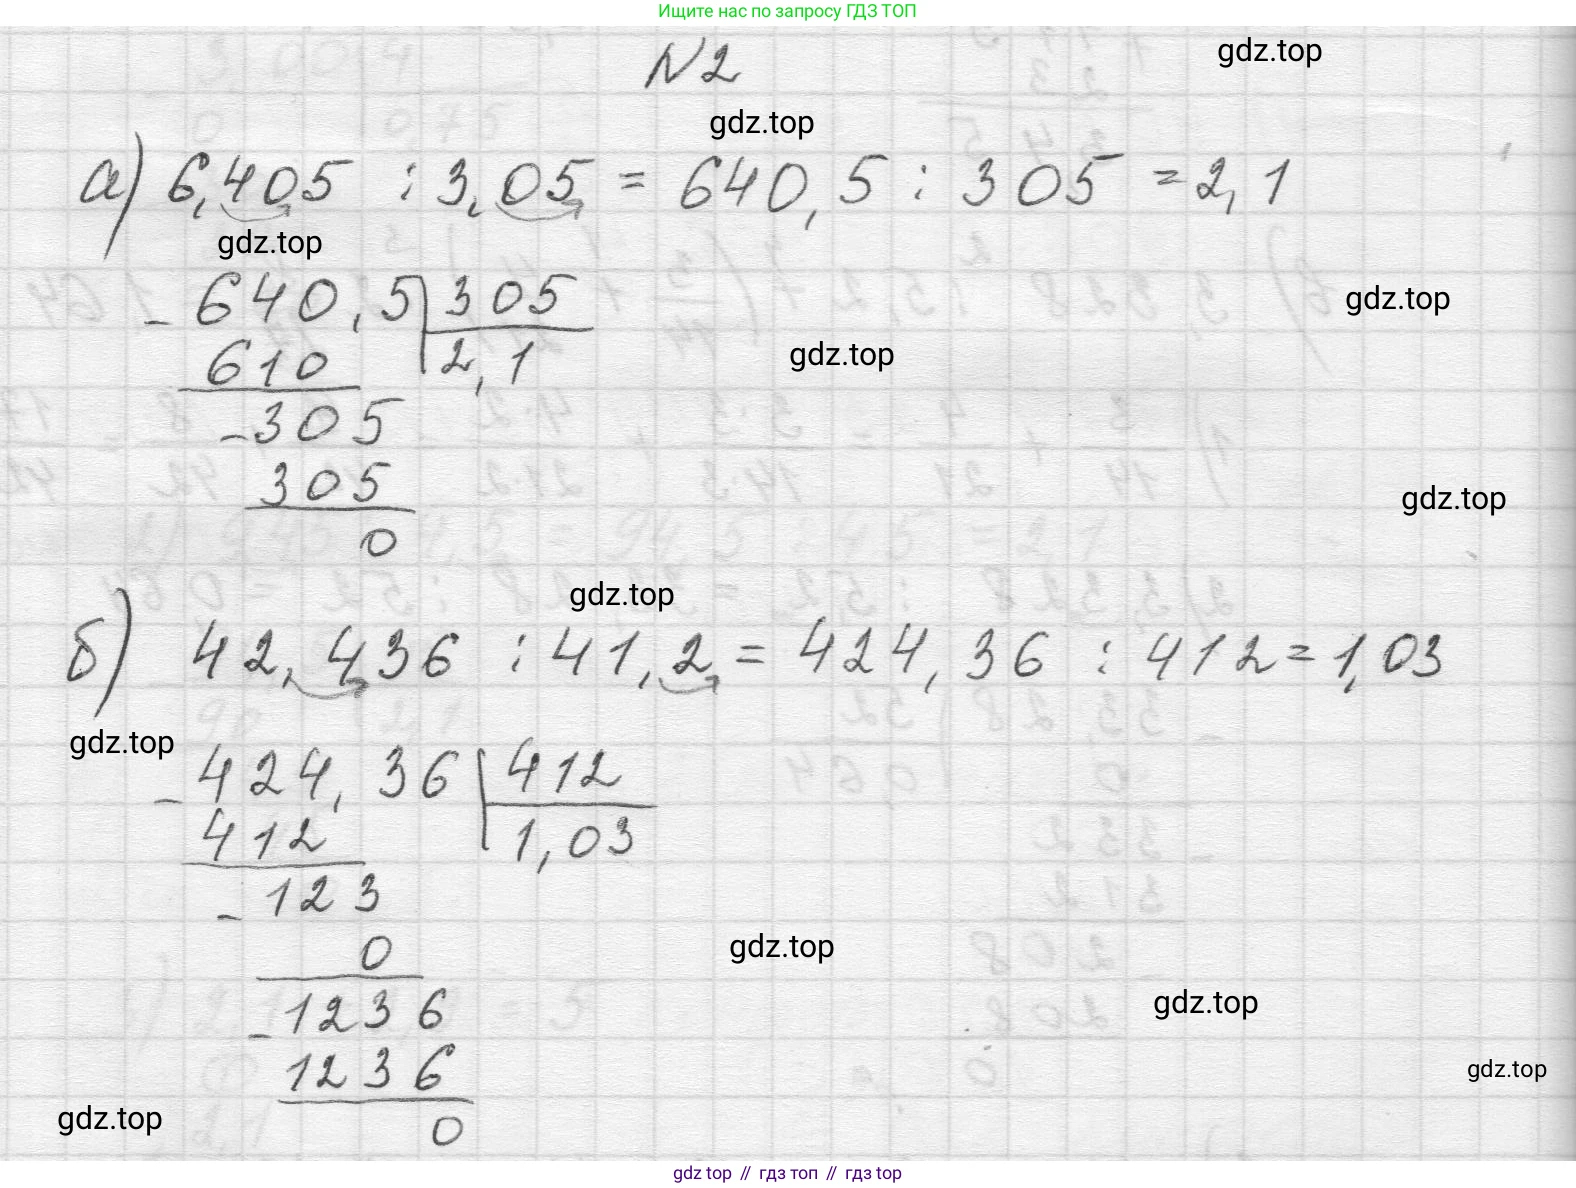 Ищите нас по запросу ГДЗ ТОП
N2
gdz.top
gdz.top
а) 6,405 : 3,05 = 640,5 : 305 = 2,1
gdz.top
- 640,5 | 305
gdz.top
610 | 2,1
gdz.top
- 305
305
gdz.top
0
gdz.top
б) 42,436 : 41,2 = 424,36 : 412 = 1,03
gdz.top
- 424,36 | 412
412 | 1,03
- 123
0
gdz.top
- 1236
gdz.top
1236
gdz.top
gdz.top
0
gdz top // гдз топ // гдз top